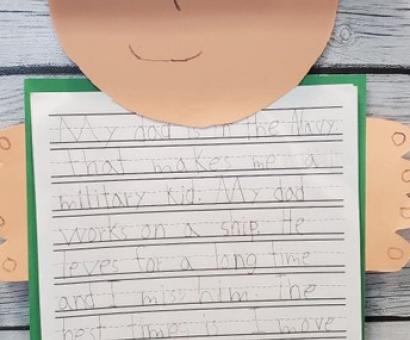 My dad is in the Navy
that makes me a
military kid. My dad
works on a ship. He
leves for a long time
and I miss him. The
best times is I move